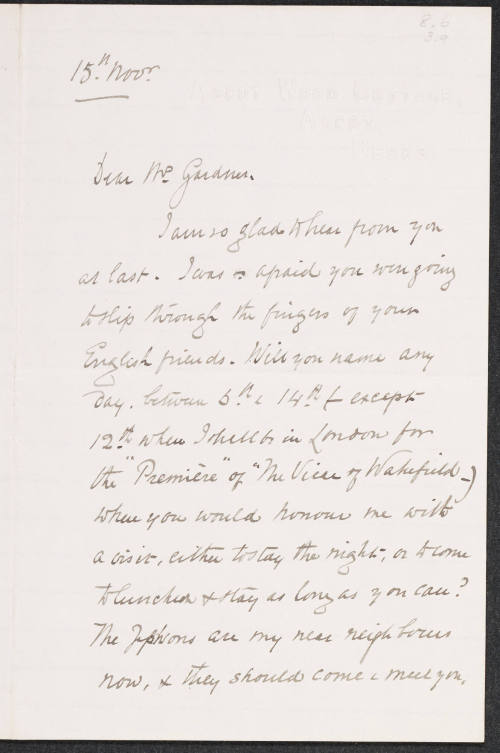 8.6
15th Novr
Dear Mrs Gardner.
I am so glad to hear from you
at last. I was so afraid you were going
to slip through the fingers of your
English friends. Will you name any
day. between 5th & 14th (except
12th when I shall be in London for
the "Première" of "The Vicar of Wakefield")
when you would honour me with
a visit, either to stay the night, or to come
to luncheon & stay as long as you can?
The are my near neighbours
now, & they should come & meet you.